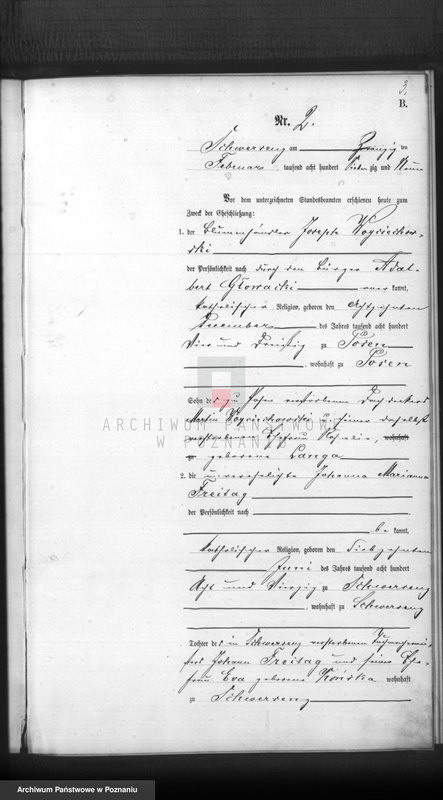 3.
B.
Nr. 2.
Schwersenz am Zwanzig ten
Februar tausend acht hundert Sieben zig und Neun
Vor dem unterzeichneten Standesbeamten erschienen heute zum
Zweck der Eheschließung:
1. der Blumenhändler Joseph Woyciechow-
ski
der Persönlichkeit nach durch den Bürger Adal-
bert Głowacki aner kannt,
katholischer Religion, geboren den Achtzehnten
Dezember des Jahres tausend acht hundert
Vier und Dreißig zu Posen
, wohnhaft zu Posen
Sohn des zu verstorbenen Dachdeckers
Martin Woyciechowski und seiner daselbst
verstorbenen Ehefrau Rosalie, wohnhaft
zu geborene Langa
2. die unverehelichte Johanna Marianna
Freitag
der Persönlichkeit nach
be kannt,
katholischer Religion, geboren den Siebzehnten
Juni des Jahres tausend acht hundert
Acht und Vierzig zu Schwersenz
, wohnhaft zu Schwersenz
Tochter des in Schwersenz verstorbenen
Johann Freitag und seiner Ehe-
frau Eva geborene Końska wohnhaft
zu Schwersenz
ARCHIWUM PAŃSTWOWE
W POZNANIU
Archiwum Państwowe w Poznaniu